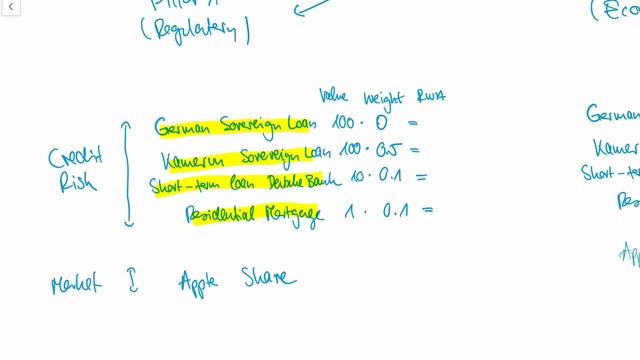 (Regulatory)
(Eco
Value Weight RWA
German Sovereign Loan 100 · 0 =
Kamerun Sovereign Loan 100 · 0.5 =
Short-term loan Deutsche Bank 10 · 0.1 =
Residential Mortgage 1 · 0.1 =
Credit
Risk
Market Apple Share
German
Kamer
Short-t
Resi
App